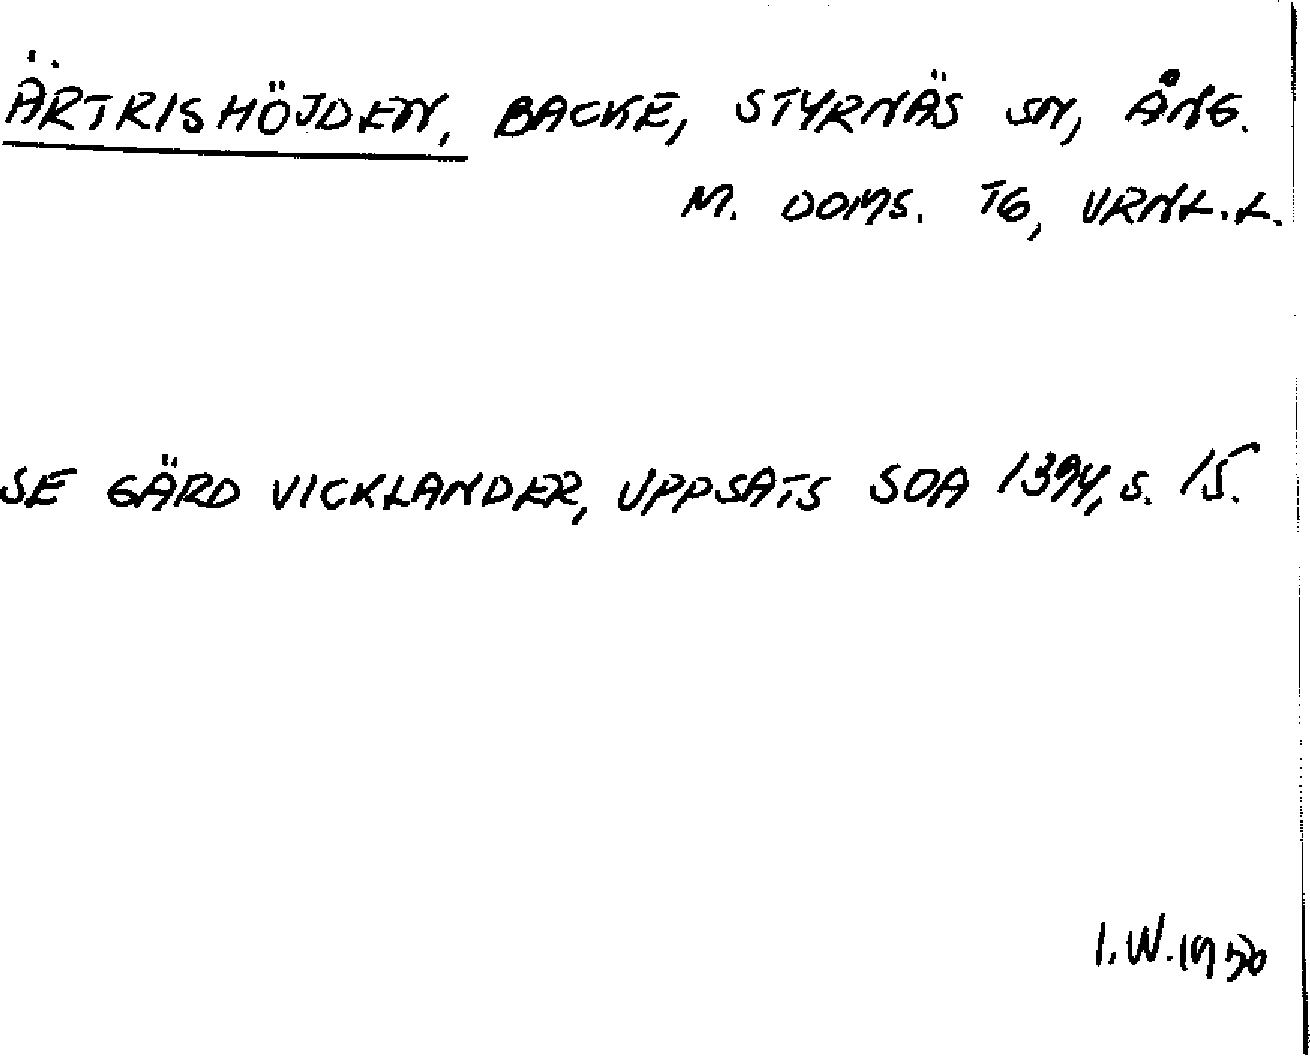 ÄRTRISHÖJDEN, BACKE, STYRNÄS SN, ÅNG.
M. DOMS. TG, URNL.L.
SE GÄRD VICKLANDER, UPPSATS SOA 1394, S. 15.
I.W. 1950